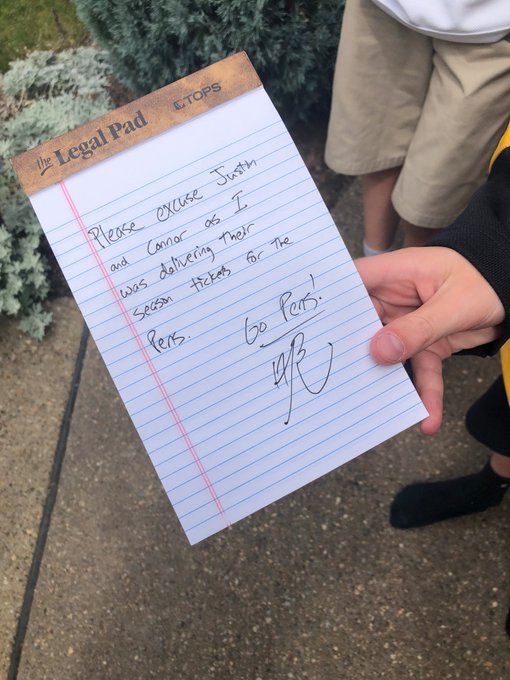 the Legal Pad TOPS
Please excuse Justin
and Connor as I
was delivering their
season tickets for the
Pens.
Go Pens!